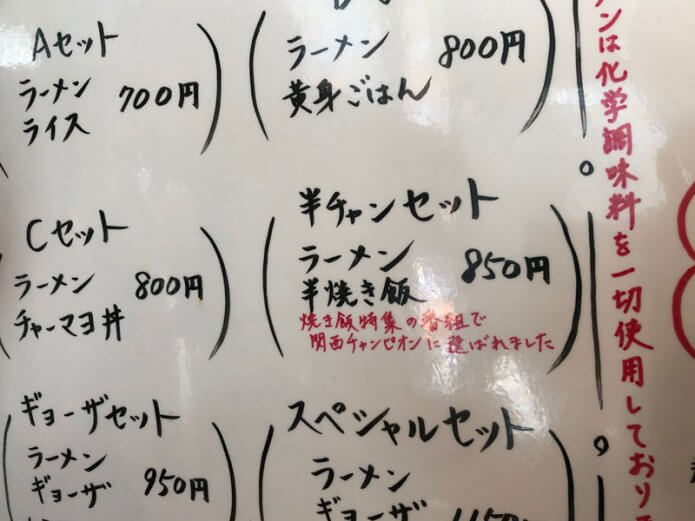 Aセット
ラーメン
700円
ライス
ラーメン
800円
黄身ごはん
Cセット
ラーメン
800円
チャーマヨ丼
半チャンセット
ラーメン
850円
半焼き飯
焼き飯特集の番組で
関西チャンピオンに選ばれました
ギョーザセット
ラーメン
ギョーザ
950円
スペシャルセット
ラーメン
ギョーザ
ンは化学調味料を一切使用しており